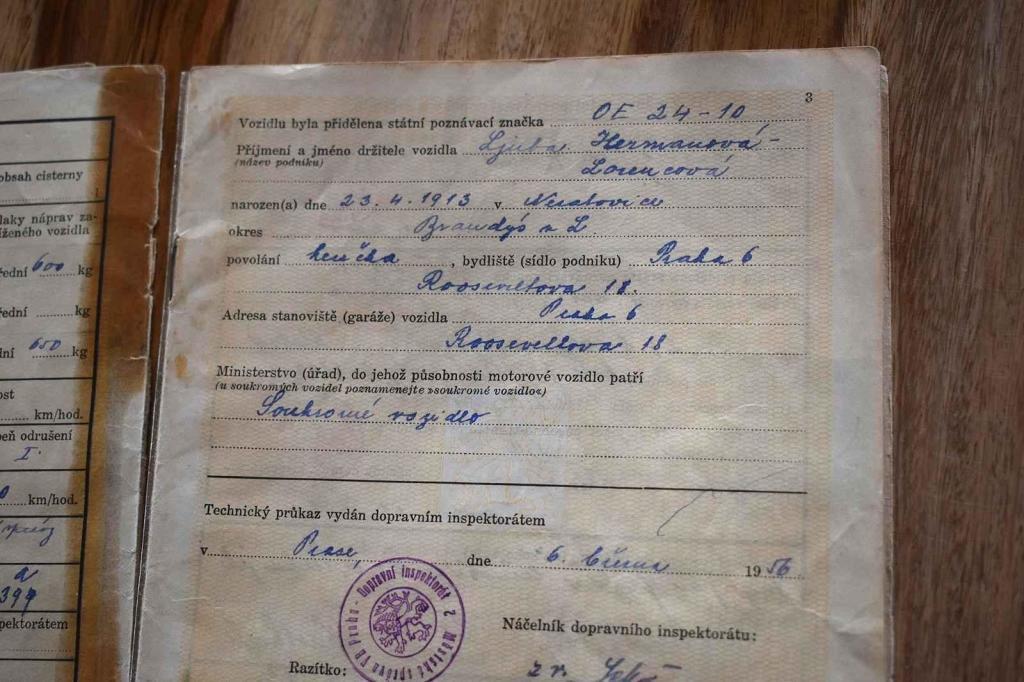 obsah cisterny
l
laky náprav za-
íženého vozidla
řední 600 kg
řední kg
ní 650 kg
ost
km/hod.
peň odrušení
I.
0 km/hod.
a
pektorátem
3
Vozidlu byla přidělena státní poznávací značka OE 24-10
Příjmení a jméno držitele vozidla Ljuba Hermanová-
(název podniku)
Lorencová
narozen(a) dne 23. 4. 1913 v Neratovice
okres Brandýs n L
povolání herečka, bydliště (sídlo podniku) Praha 6
Rooseveltova 18.
Adresa stanoviště (garáže) vozidla Praha 6
Rooseveltova 18
Ministerstvo (úřad), do jehož působnosti motorové vozidlo patří
(u soukromých vozidel poznamenejte »soukromé vozidlo«)
Soukromé vozidlo
Technický průkaz vydán dopravním inspektorátem
v Praze, dne 6. března 1956
Dopravní inspektorát
Městská správa VB Praha
2
Náčelník dopravního inspektorátu:
Razítko: z r.